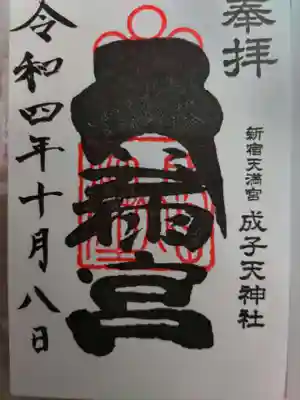 奉拝
新宿天満宮 成子天神社
宮
令和四年十月八日